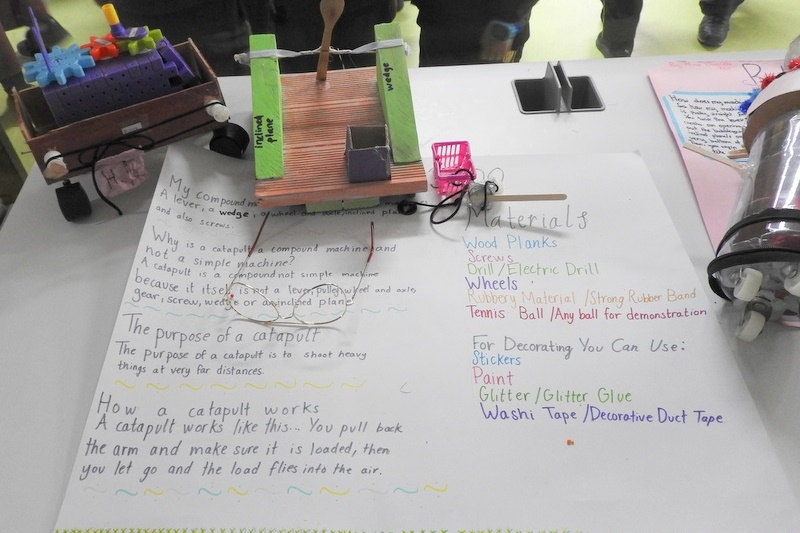 inclined
plane
wedge
My compound
A lever, a wedge, a wheel and axle, inclined plane
and also screws.
Why is a catapult a compound machine and
not a simple machine?
A catapult is a compound not simple machine
because it itself is not a lever, pulley, wheel and axle,
gear, screw, wedge or an inclined plane.
The purpose of a catapult
The purpose of a catapult is to shoot heavy
things at very far distances.
How a catapult works
A catapult works like this... You pull back
the arm and make sure it is loaded, then
you let go and the load flies into the air.
Materials
Wood Planks
Screws
Drill/Electric Drill
Wheels
Rubbery Material/Strong Rubber Band
Tennis Ball/Any ball for demonstration
For Decorating You Can Use:
Stickers
Paint
Glitter/Glitter Glue
Washi Tape/Decorative Duct Tape
How does my